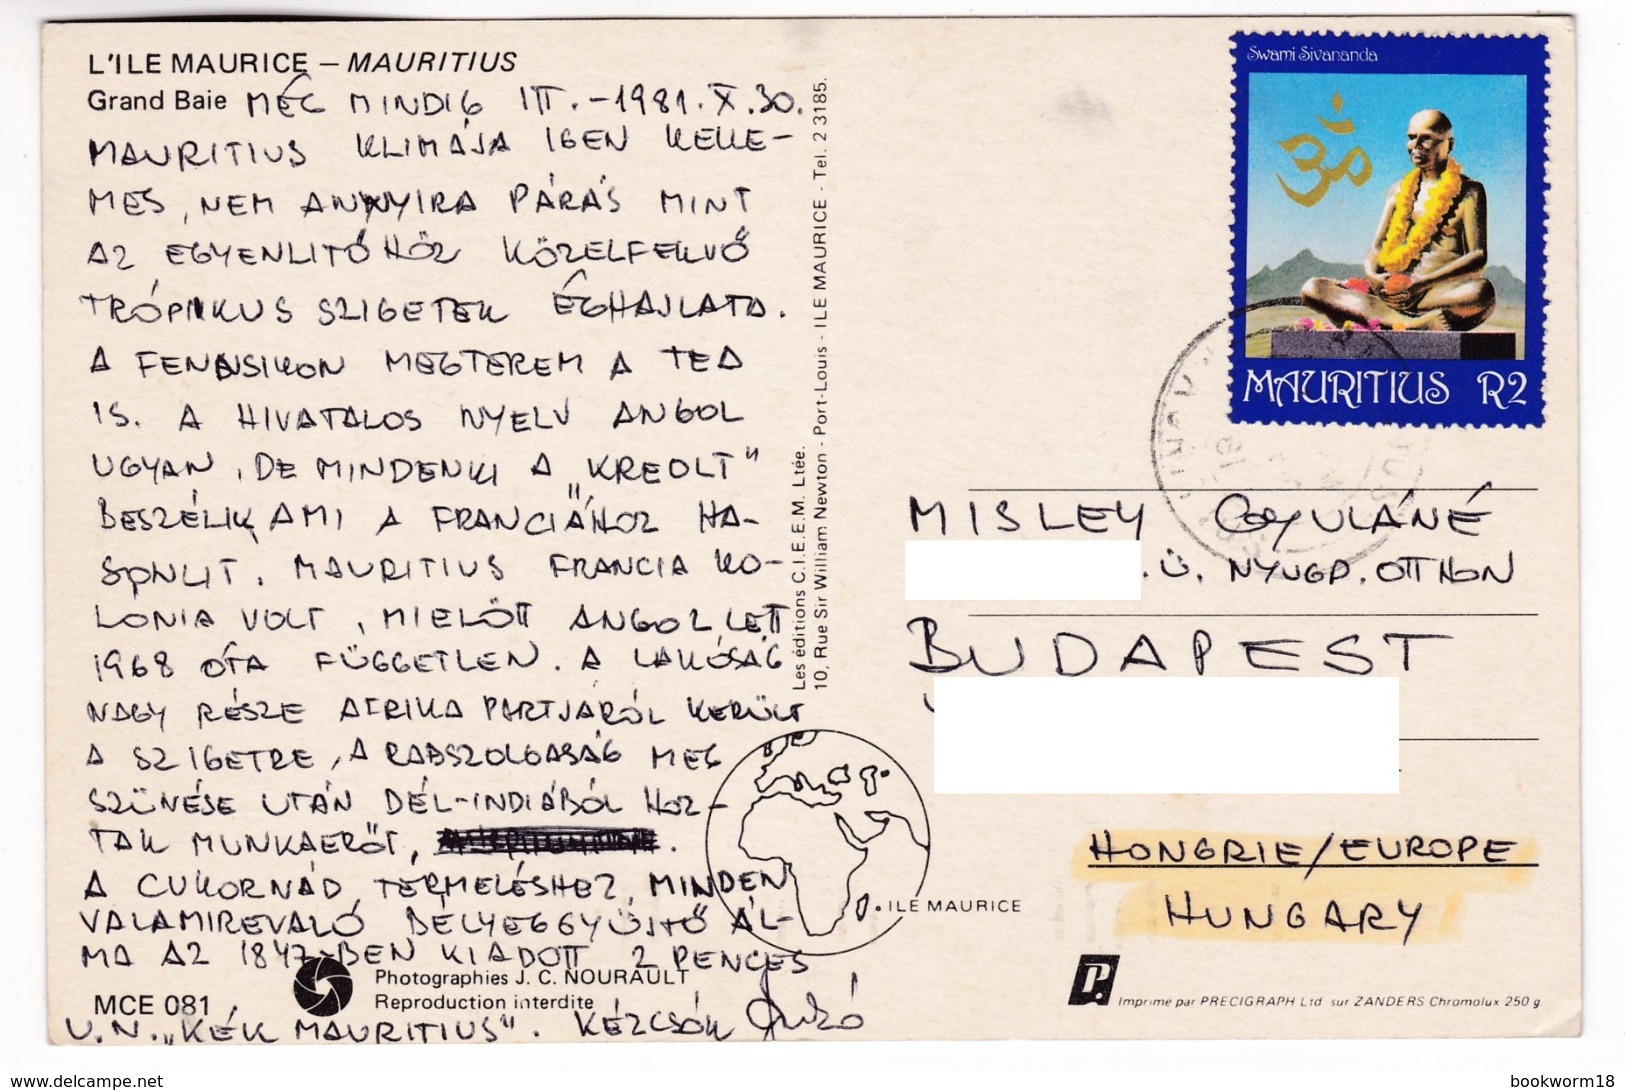 L'ILE MAURICE – MAURITIUS
Grand Baie MÉG MINDIG ITT.-1981.X.30.
MAURITIUS KLIMÁJA IGEN KELLE-
MES, NEM ANNYIRA PÁRÁS MINT
AZ EGYENLITŐHÖZ KÖZELFEKVŐ
TRÓPIKUS SZIGETEK ÉGHAJLATA.
A FENNSIKON MEGTEREM A TEA
IS. A HIVATALOS NYELV ANGOL
UGYAN, DE MINDENKI A "KREOLT"
BESZÉLIK, AMI A FRANCIÁHOZ HA-
SONLIT. MAURITIUS FRANCIA KO-
LONIA VOLT, MIELŐTT ANGOL LETT
1968 ÓTA FÜGGETLEN. A LAKÓSÁG
NAGY RÉSZE AFRIKA PARTJÁRÓL KERÜLT
A SZIGETRE, A RABSZOLGASÁG MEG
SZÜNÉSE UTÁN DÉL-INDIÁBÓL HOZ-
TAK MUNKAERŐT, .
A CUKORNÁD TERMELÉSHEZ, MINDEN
VALAMIREVALÓ BELYEGGYÜJTŐ ÁL-
MA AZ 1847-BEN KIADOTT 2 PENCES
Photographies J. C. NOURAULT
MCE 081 Reproduction interdite
U.N. "KÉK MAURITIUS". KÉZCSÓK
Les éditions C.I.E.E.M. Ltée.
10, Rue Sir William Newton - Port-Louis - ILE MAURICE - Tel. 2 3185.
ILE MAURICE
Swami Sivananda
MAURITIUS R2
MISLEY GYULÁNÉ
.Ü. NYUGD. OTTHON
BUDAPEST
HONGRIE/EUROPE
HUNGARY
P.
Imprimé par PRECIGRAPH Ltd sur ZANDERS Chromolux 250 g.
www.delcampe.net
bookworm18